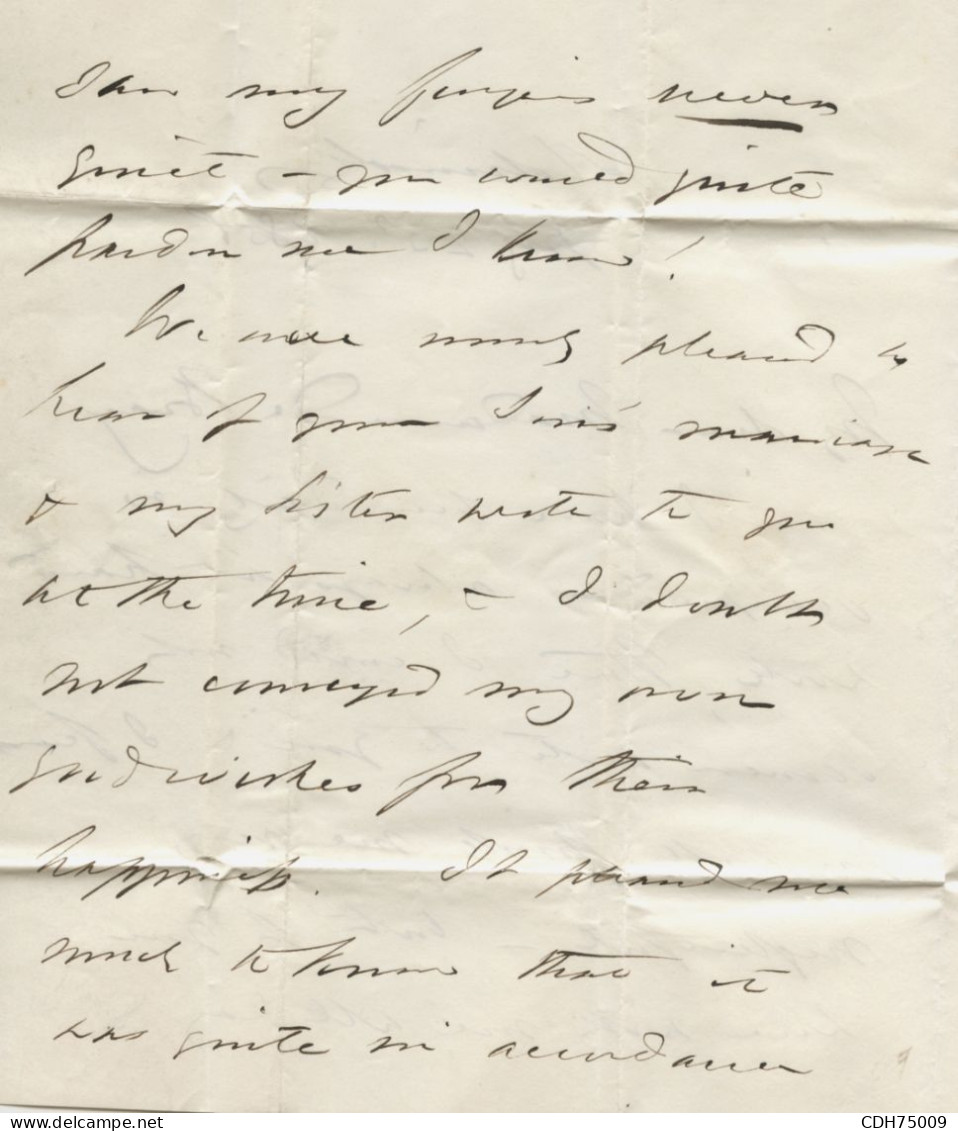 and my fingers never
quiet – you would quite
pardon me I know!
We were much pleased to
hear of your Son's marriage
& my Sister wrote to you
at the time, & I doubt
not conveyed my own
good wishes for their
happiness. It pleased me
much to know that it
was quite in accordance
www.delcampe.net
CDH75009